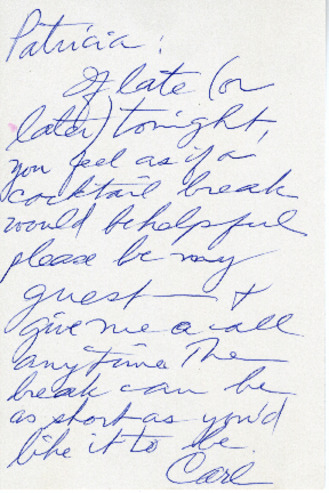 Patricia:
If late (or
later) tonight,
you feel as if a
cocktail break
would be helpful
please be my
guest — &
give me a call
anytime. The
break can be
as short as you'd
like it to be.
Carl